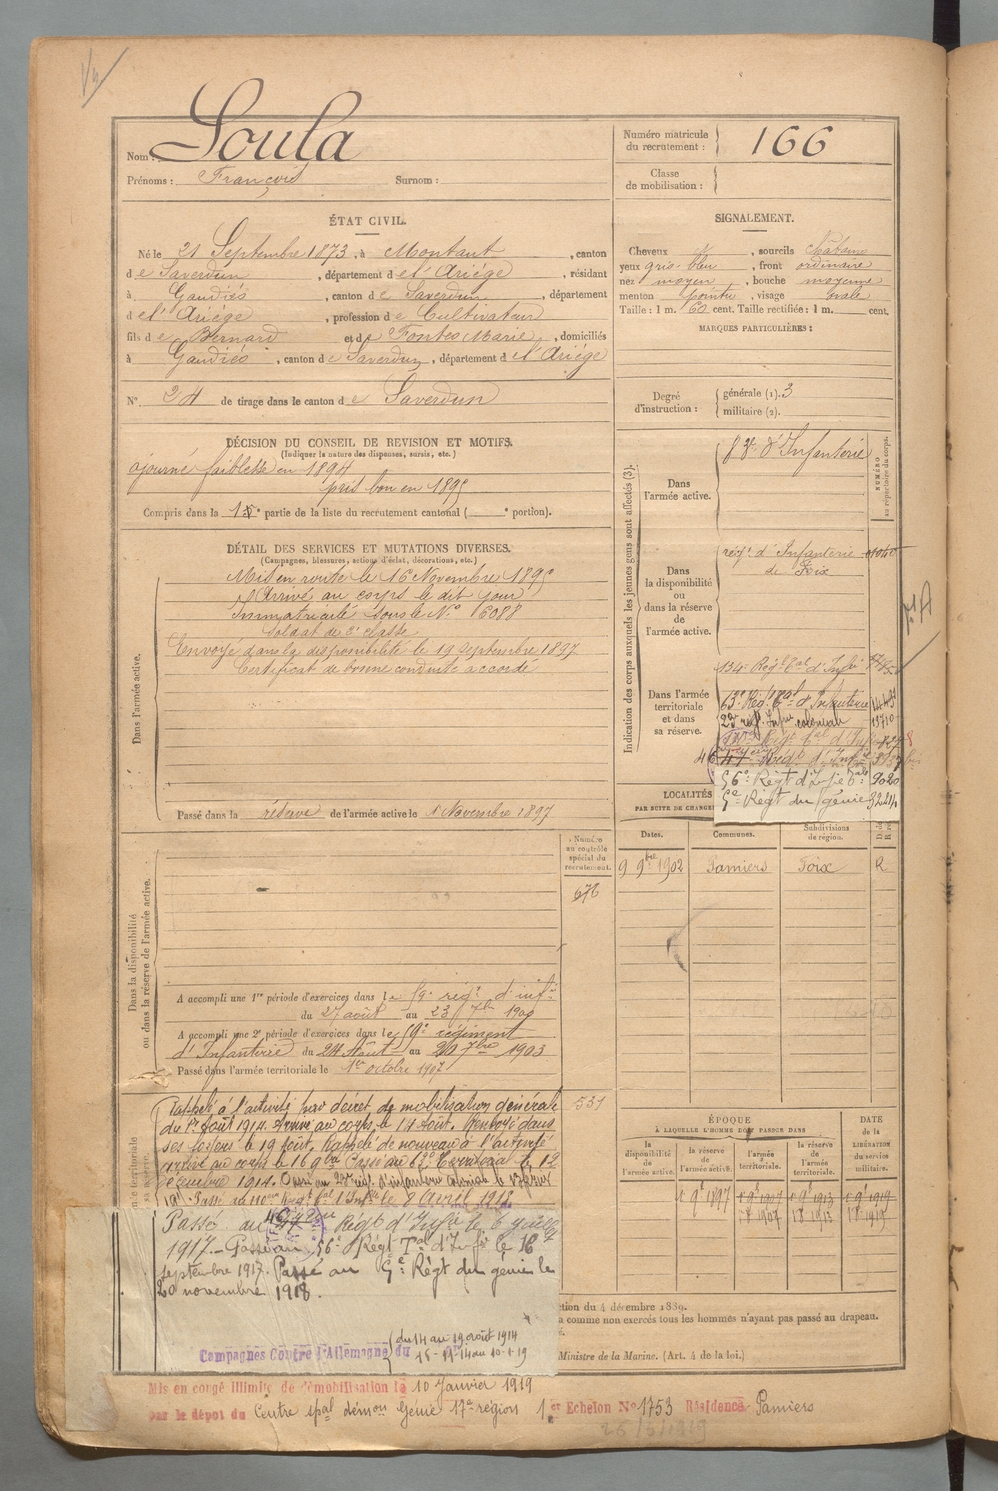 Nom : Soula
Prénoms : François Surnom :
Numéro matricule du recrutement : 166
Classe de mobilisation :
ÉTAT CIVIL.
Né le 21 Septembre 1873, à Montaut, canton
de Saverdun, département de l'Ariège, résidant
à Gaudiès, canton de Saverdun, département
de l'Ariège, profession de Cultivateur
fils de Bernard et de Fontes Marie, domiciliés
à Gaudiès, canton de Saverdun, département de l'Ariège
N° 24 de tirage dans le canton de Saverdun
SIGNALEMENT.
Cheveux, sourcils châtains
yeux gris-bleu, front ordinaire
nez moyen, bouche moyenne
menton pointu, visage ovale
Taille : 1 m. 60 cent. Taille rectifiée : 1 m. cent.
MARQUES PARTICULIÈRES :
Degré d'instruction : générale (1). 3
militaire (2).
DÉCISION DU CONSEIL DE REVISION ET MOTIFS.
(Indiquer la nature des dispenses, sursis, etc.)
ajourné faiblesse en 1894
pris bon en 1895
Compris dans la partie de la liste du recrutement cantonal ( ° portion).
DÉTAIL DES SERVICES ET MUTATIONS DIVERSES.
(Campagnes, blessures, actions d'éclat, décorations, etc.)
Dans l'armée active.
Mis en route le 16 Novembre 1895
Arrivé au corps le dit jour
Immatriculé sous le N° 6088
Soldat de 2e classe
Envoyé dans la disponibilité le 19 septembre 1897
Certificat de bonne conduite accordé
Passé dans la réserve de l'armée active le Novembre 1897
Indication des corps auxquels les jeunes gens sont affectés (3).
NUMÉRO au répertoire du corps.
Dans l'armée active.
d'Infanterie
Dans la disponibilité ou dans la réserve de l'armée active.
régt d'Infanterie
de Foix
Dans l'armée territoriale et dans sa réserve.
134e Régt tal d'Infie
63e Régt tal d'Infanterie
2e régt Infie coloniale
56e Régt d'Infie tale 9020
5e Régt du génie
LOCALITÉS
PAR SUITE DE CHANGE
Dates. Communes. Subdivisions de région.
9 9bre 1902 Pamiers Foix R
Numéro au contrôle spécial du recrutement.
676
Dans la disponibilité ou dans la réserve de l'armée active.
A accompli une 1re période d'exercices dans le 59e régt d'infie
du 27 août au 23 7bre 1900
A accompli une 2e période d'exercices dans le 59e régiment
d'Infanterie du 24 Août au 20 7bre 1903
Passé dans l'armée territoriale le 1er octobre 1907
531
Rappelé à l'activité par décret de mobilisation générale
du 1er Août 1914. Arrivé au corps le 14 août. Renvoyé dans
ses foyers le 19 août. Rappelé de nouveau à l'activité
arrivé au corps le 16 9bre Passé au
1914. Passé au d'infanterie coloniale le
Passé au le 8 Avril 1917
Passé au Régt d'Infie le 6 juillet
1917. Passé au 56e Régt Tal d'Infie le 16
septembre 1917. Passé au 5e Régt du génie le
20 novembre 1918.
Campagnes Contre l'Allemagne du
du 14 au 19 août 1914
ÉPOQUE
À LAQUELLE L'HOMME DOIT PASSER DANS
la disponibilité de l'armée active. la réserve de l'armée active. l'armée territoriale. la réserve de l'armée territoriale.
DATE de la LIBÉRATION du service militaire.
1 9e 1897 1 9e 1907 1 9e 1913 1 9e 1919
ction du 4 décembre 1889.
a comme non exercés tous les hommes n'ayant pas passé au drapeau.
Ministre de la Marine. (Art. 4 de la loi.)
Mis en congé illimité de démobilisation le 10 Janvier 1919
par le dépôt du Centre spal démon Génie 17e région 1er Echelon N° 1753 Résidence Pamiers